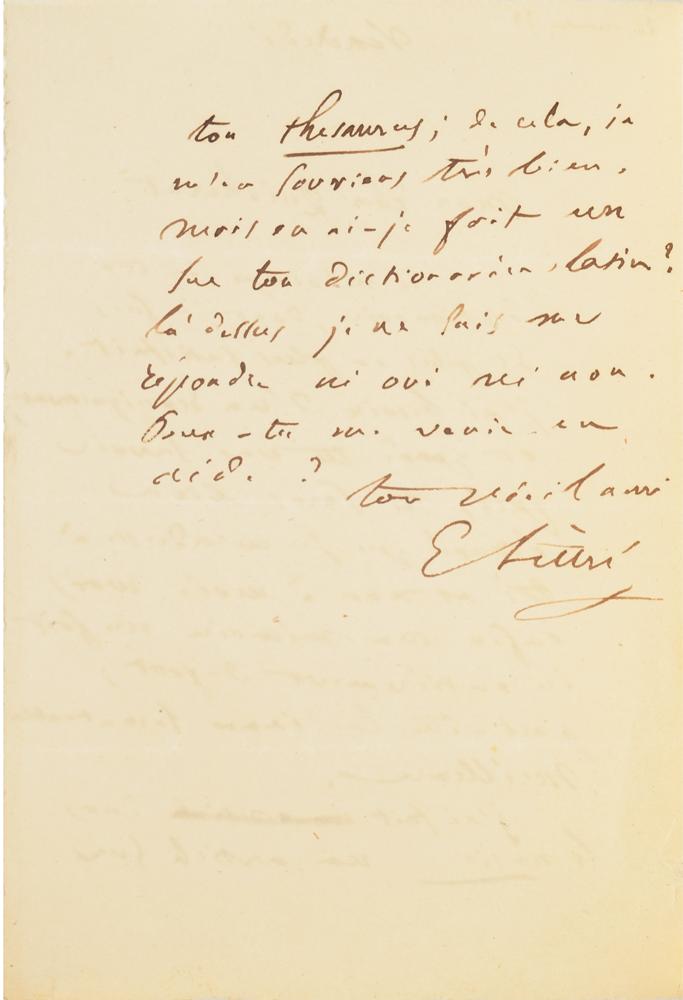 ton thesaurus ; de cela, je
m'en souviens très bien.
mais en ai-je fait un
sur ton dictionnaire latin ?
là dessus je ne sais me
répondre ni oui ni non.
Peux-tu me venir en
aide ?
ton vieil ami
E Littré